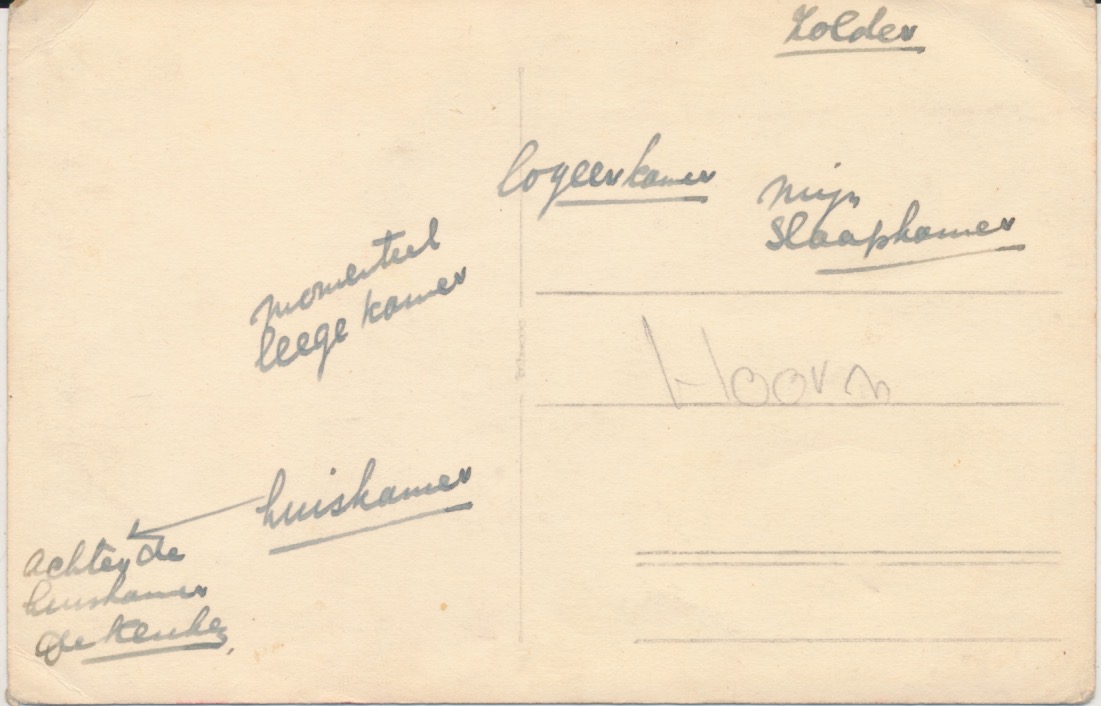 Zolder
logeerkamer
mijn
slaapkamer
momenteel
leege kamer
Hoorn
huiskamer
achter de
huiskamer
de keuken,